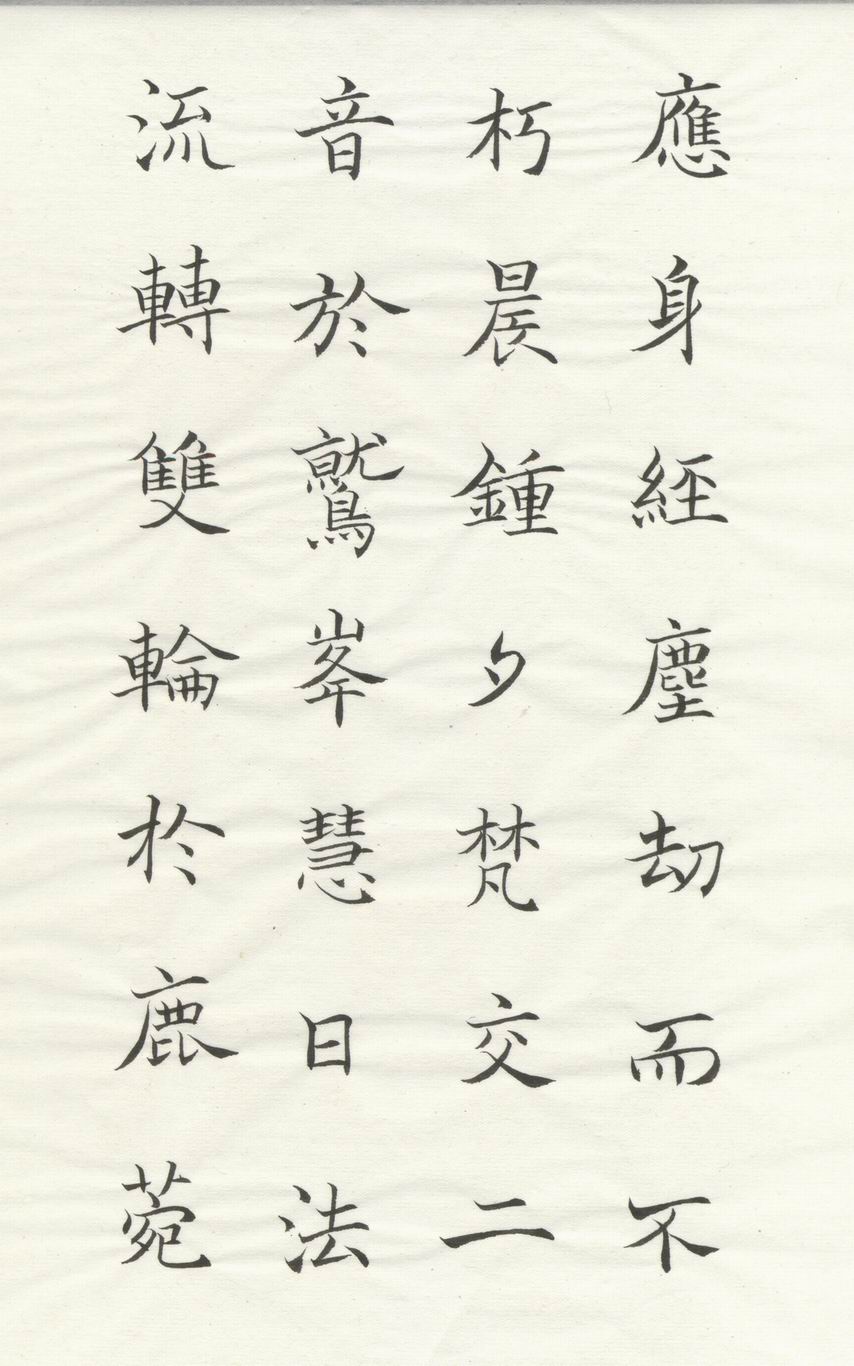 應身經塵劫而不
朽晨鍾夕梵交二
音於鷲峯慧日法
流轉雙輪於鹿菀